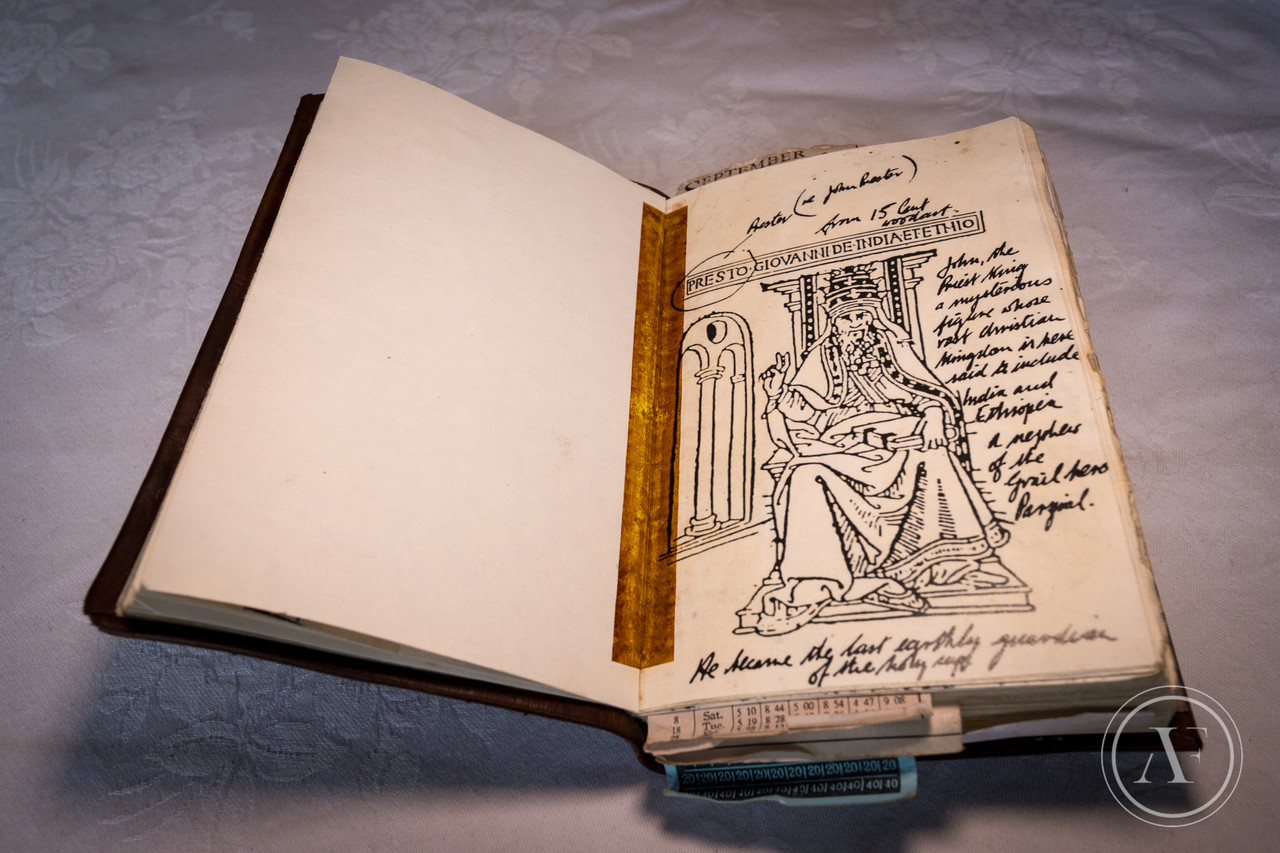 SEPTEMBER
Prester (or John Prester)
from 15 Cent
woodcut.
PRESTO·GIOVANNI·DE·INDIA·ET·ETHIO
John, the
Priest King
a mysterious
figure whose
vast Christian
Kingdom is here
said to include
India and
Ethiopia
a nephew
of the
Grail hero
Parzival.
He became the last earthly guardian
of the holy cup
8 Sat. 5 10 8 44 5 00 8 54 4 47 9 08
18 Tue. 5 19 8 28
20 20 20 20 20 20 20 20 20 20 20 20
40 40 40 40 40 40 40 40
AF